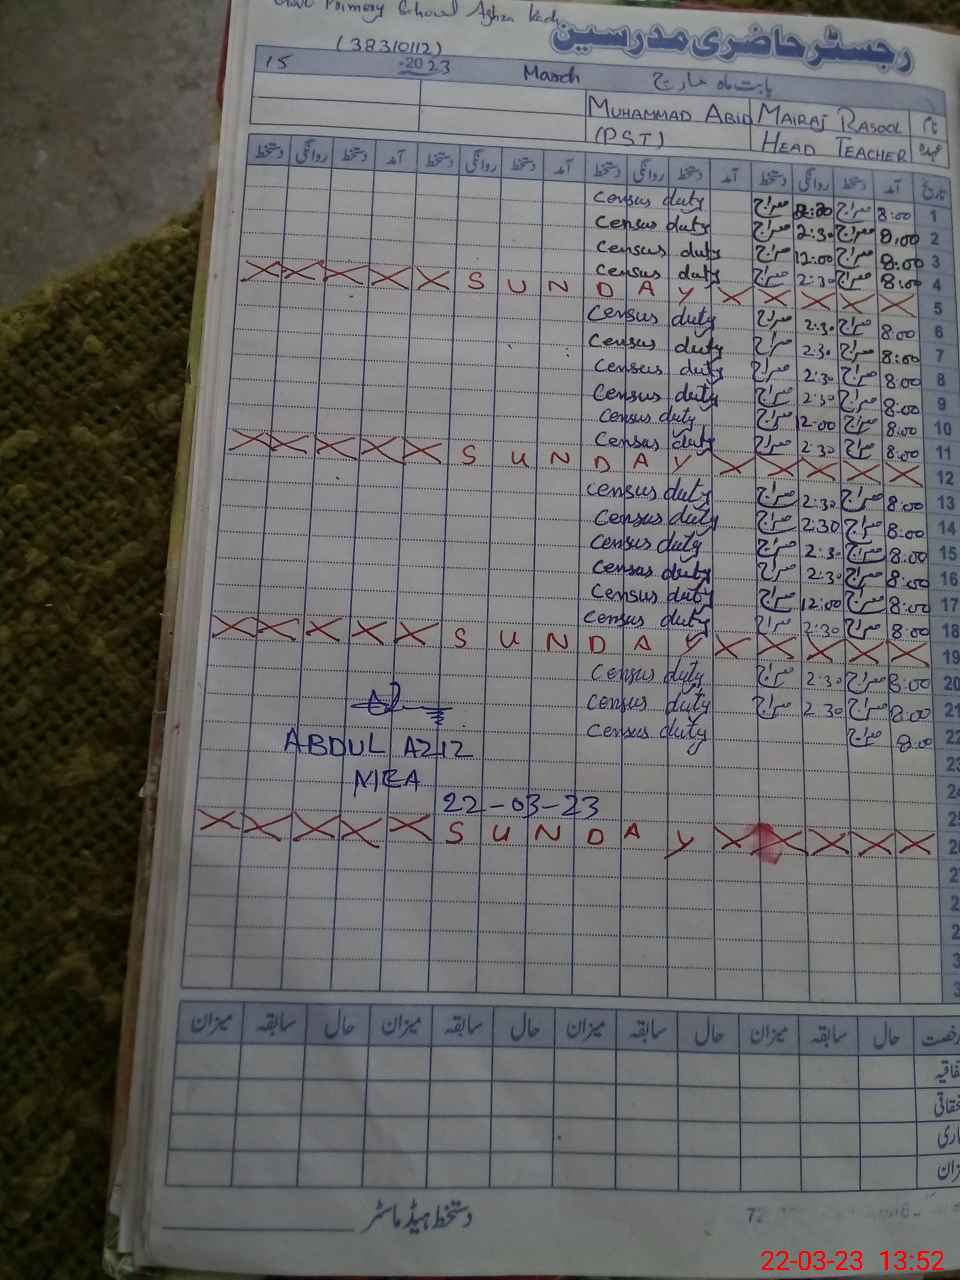 Govt Primary School Aghza
(38310112)
رجسٹر حاضری مدرسین
15 2023 March بابت ماہ مارچ
نام MAIRAJ RASOOL MUHAMMAD ABID
عہدہ HEAD TEACHER (PST)
تاریخ آمد دستخط روانگی دستخط آمد دستخط روانگی دستخط آمد دستخط روانگی دستخط آمد دستخط روانگی دستخط
1 8:00 معراج معراج Census duty
2 8:00 معراج 2:30 معراج Census duty
3 8:00 معراج 12:00 معراج Census duty
4 8:00 معراج 2:30 معراج Census duty
5 X X X X X S U N D A Y X X X X X
6 8:00 معراج 2:30 معراج Census duty
7 8:00 معراج 2:30 معراج Census duty
8 8:00 معراج 2:30 معراج Census duty
9 8:00 معراج 2:30 معراج Census duty
10 8:00 معراج 12:00 معراج Census duty
11 8:00 معراج 2:30 معراج Census duty
12 X X X X X S U N D A Y X X X X X
13 8:00 معراج 2:30 معراج Census duty
14 8:00 معراج 2:30 معراج Census duty
15 8:00 معراج 2:30 معراج Census duty
16 8:00 معراج 2:30 معراج Census duty
17 8:00 معراج 12:00 معراج Census duty
18 8:00 معراج 2:30 معراج Census duty
19 X X X X X S U N D A Y X X X X X
20 8:00 معراج 2:30 معراج Census duty
21 8:00 معراج 2:30 معراج Census duty
22 8:00 معراج Census duty
ABDUL AZIZ
MEA
22-03-23
X X X X X S U N D A Y X X X X X
حال سابقہ میزان حال سابقہ میزان حال سابقہ میزان حال سابقہ میزان
دستخط ہیڈ ماسٹر
72
22-03-23 13:52